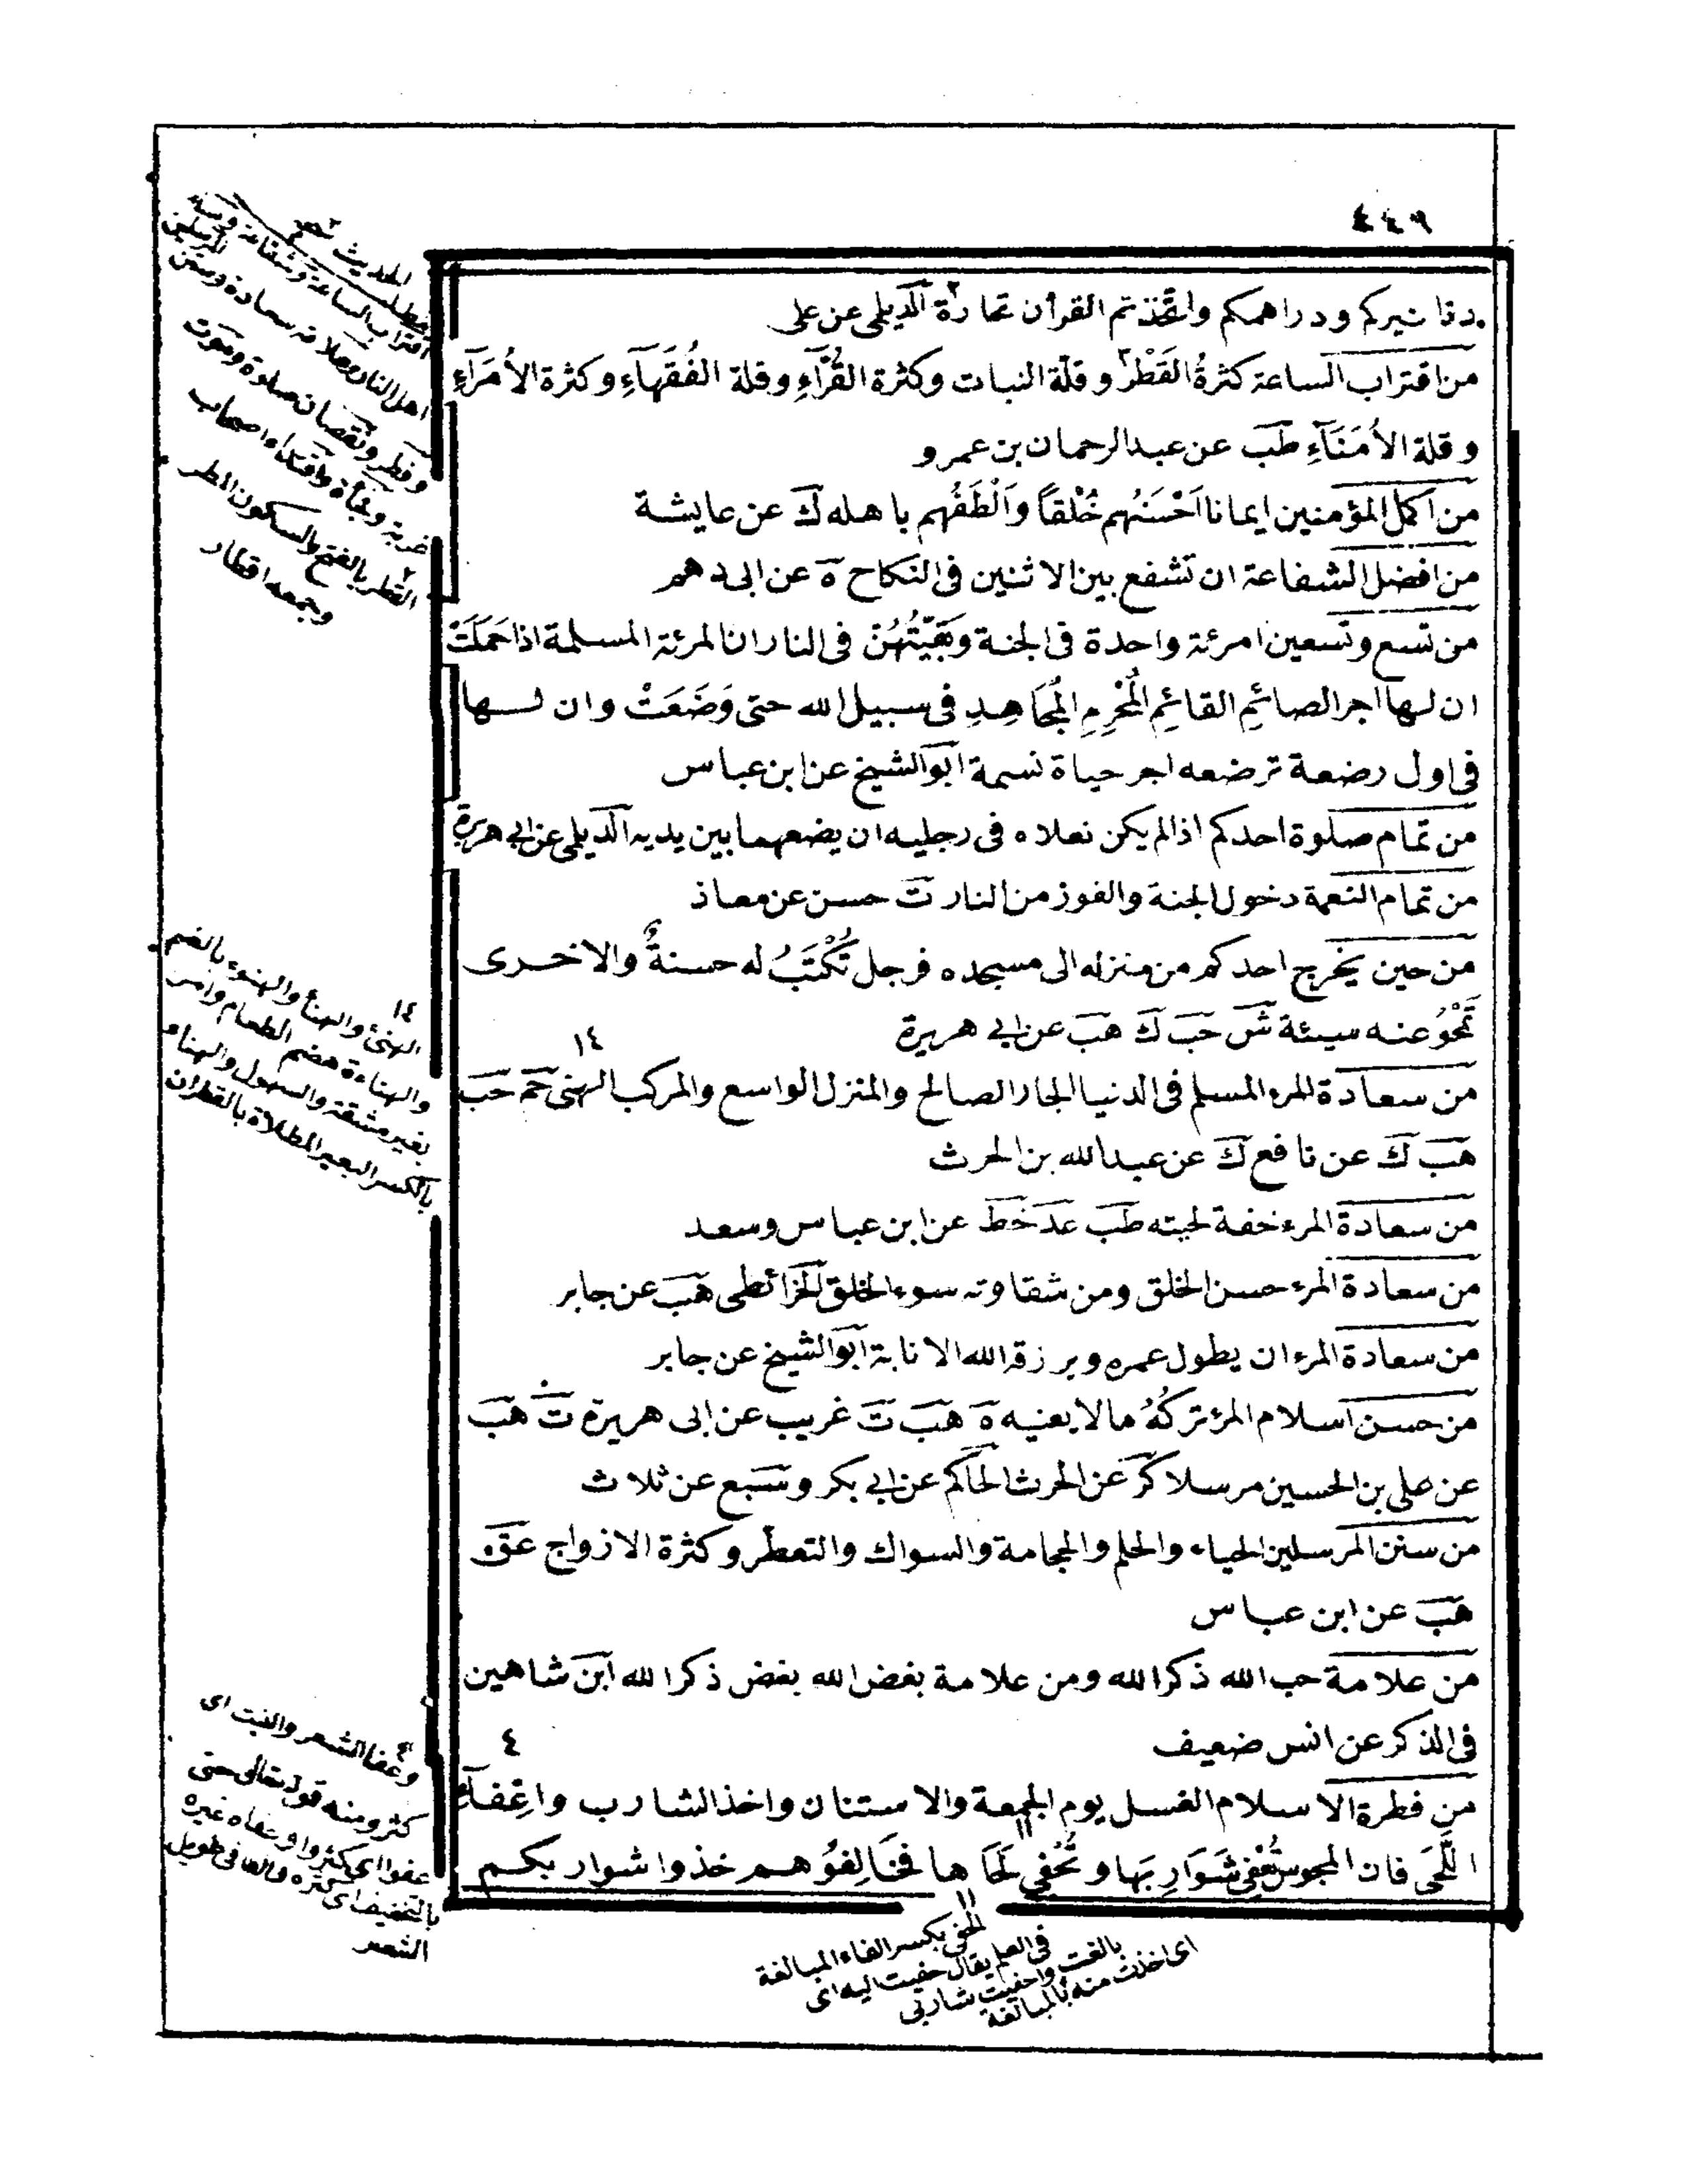 ٤٤٩
دنانيركم ودراهمكم واتخذتم القرأن تجارة الديلمى عن على
من اقتراب الساعة كثرةُ القَطْر وقلة النبات وكثرة القُرَّاءِ وقلة الفُقَهَآءِ وكثرة الأُمَرَآءِ
وقلة الأُمَنَآءِ طب عن عبدالرحمان بن عمرو
من اكمل المؤمنين ايمانا اَحْسَنُهم خُلْقاً واَلْطَفُهم باهله ك عن عايشة
من افضل الشفاعة ان تشفع بين الاثنين فى النكاح ه عن ابى دهم
من تسع وتسعين امرئة واحدة فى الجنة وبَقِيَّتُهُنّ فى النار ان المرئة المسلمة اذا حَمَلَتْ
ان لها اجر الصائمِ القائمِ المُحْرِمِ المُجَاهِدِ فى سبيل الله حتى وَضَعَتْ وان لها
فى اول رضعة ترضعه اجر حياة نسمة ابو الشيخ عن ابن عباس
من تمام صلوة احدكم اذا لم يكن نعلاه فى رجليه ان يضعهما بين يديه الديلمى عن ابى هريرة
من تمام النعمة دخول الجنة والفوز من النار ت حسن عن معاذ
من حين يخرج احدكم من منزله الى مسجده فرجل تُكْتَبُ له حسنةٌ والاخرى
تَمْحُوُ عنه سيئة ش حب ك هب عن ابى هريرة
١٤
من سعادة المرء المسلم فى الدنيا الجار الصالح والمنزل الواسع والمركب الهنى حم حب
هب ك عن نافع ك عن عبدالله بن الحرث
من سعادة المرء خفة لحيته طب عد خط عن ابن عباس وسعد
من سعادة المرء حسن الخلق ومن شقاوته سوء الخلق الخرائطى هب عن جابر
من سعادة المرء ان يطول عمره ويرزقه الله الانابة ابو الشيخ عن جابر
من حسن اسلام المرء تركُهُ مالا يعنيه ه هب ت غريب عن ابى هريرة ت هب
عن على بن الحسين مرسلا كر عن الحرث الحاكم عن ابى بكر وسبع عن ثلاث
من سنن المرسلين الحياء والحلم والحجامة والسواك والتعطّر وكثرة الازواج عق
هب عن ابن عباس
من علامة حب الله ذكر الله ومن علامة بغض الله بغض ذكر الله ابن شاهين
فى الذكر عن انس ضعيف
٤
من فطرة الاسلام الغسل يوم الجمعة والاستنان واخذ الشارب واعِفَآءُ
اللَّحَى فان المجوس تُعْفِى شَوَارِبَها وتُحْفِى لَحَاها فخَالِفُوُهم خذوا شواربكم
الحديث
اقتراب الساعة وشفاعة
اهل النار وعلامة سعادة وسنن المرسلين
وفطر ونقصان صلوة وموت
القطر بالفتح والسكون المطر
وجمعه اقطار
١٤
الهنئ والهنأ والهنوء بالضم
والهناءة هضم الطعام وامر
بغير مشقة والسهول والهناء
بالكسر البعير المطلاة بالقطران
٤
وعفا الشعر والنبت اى
كثر ومنه قوله تعالى حتى
عفوا اى كثروا وعفاه غيره
بالتخفيف اى كثره والعافى طويل
الشعر
١١
الحفى بكسر الفاء المبالغة
فى العلم يقال حفيت اليه اى
بالغت واحفيت شاربى
اى اخذت منه بالمبالغة